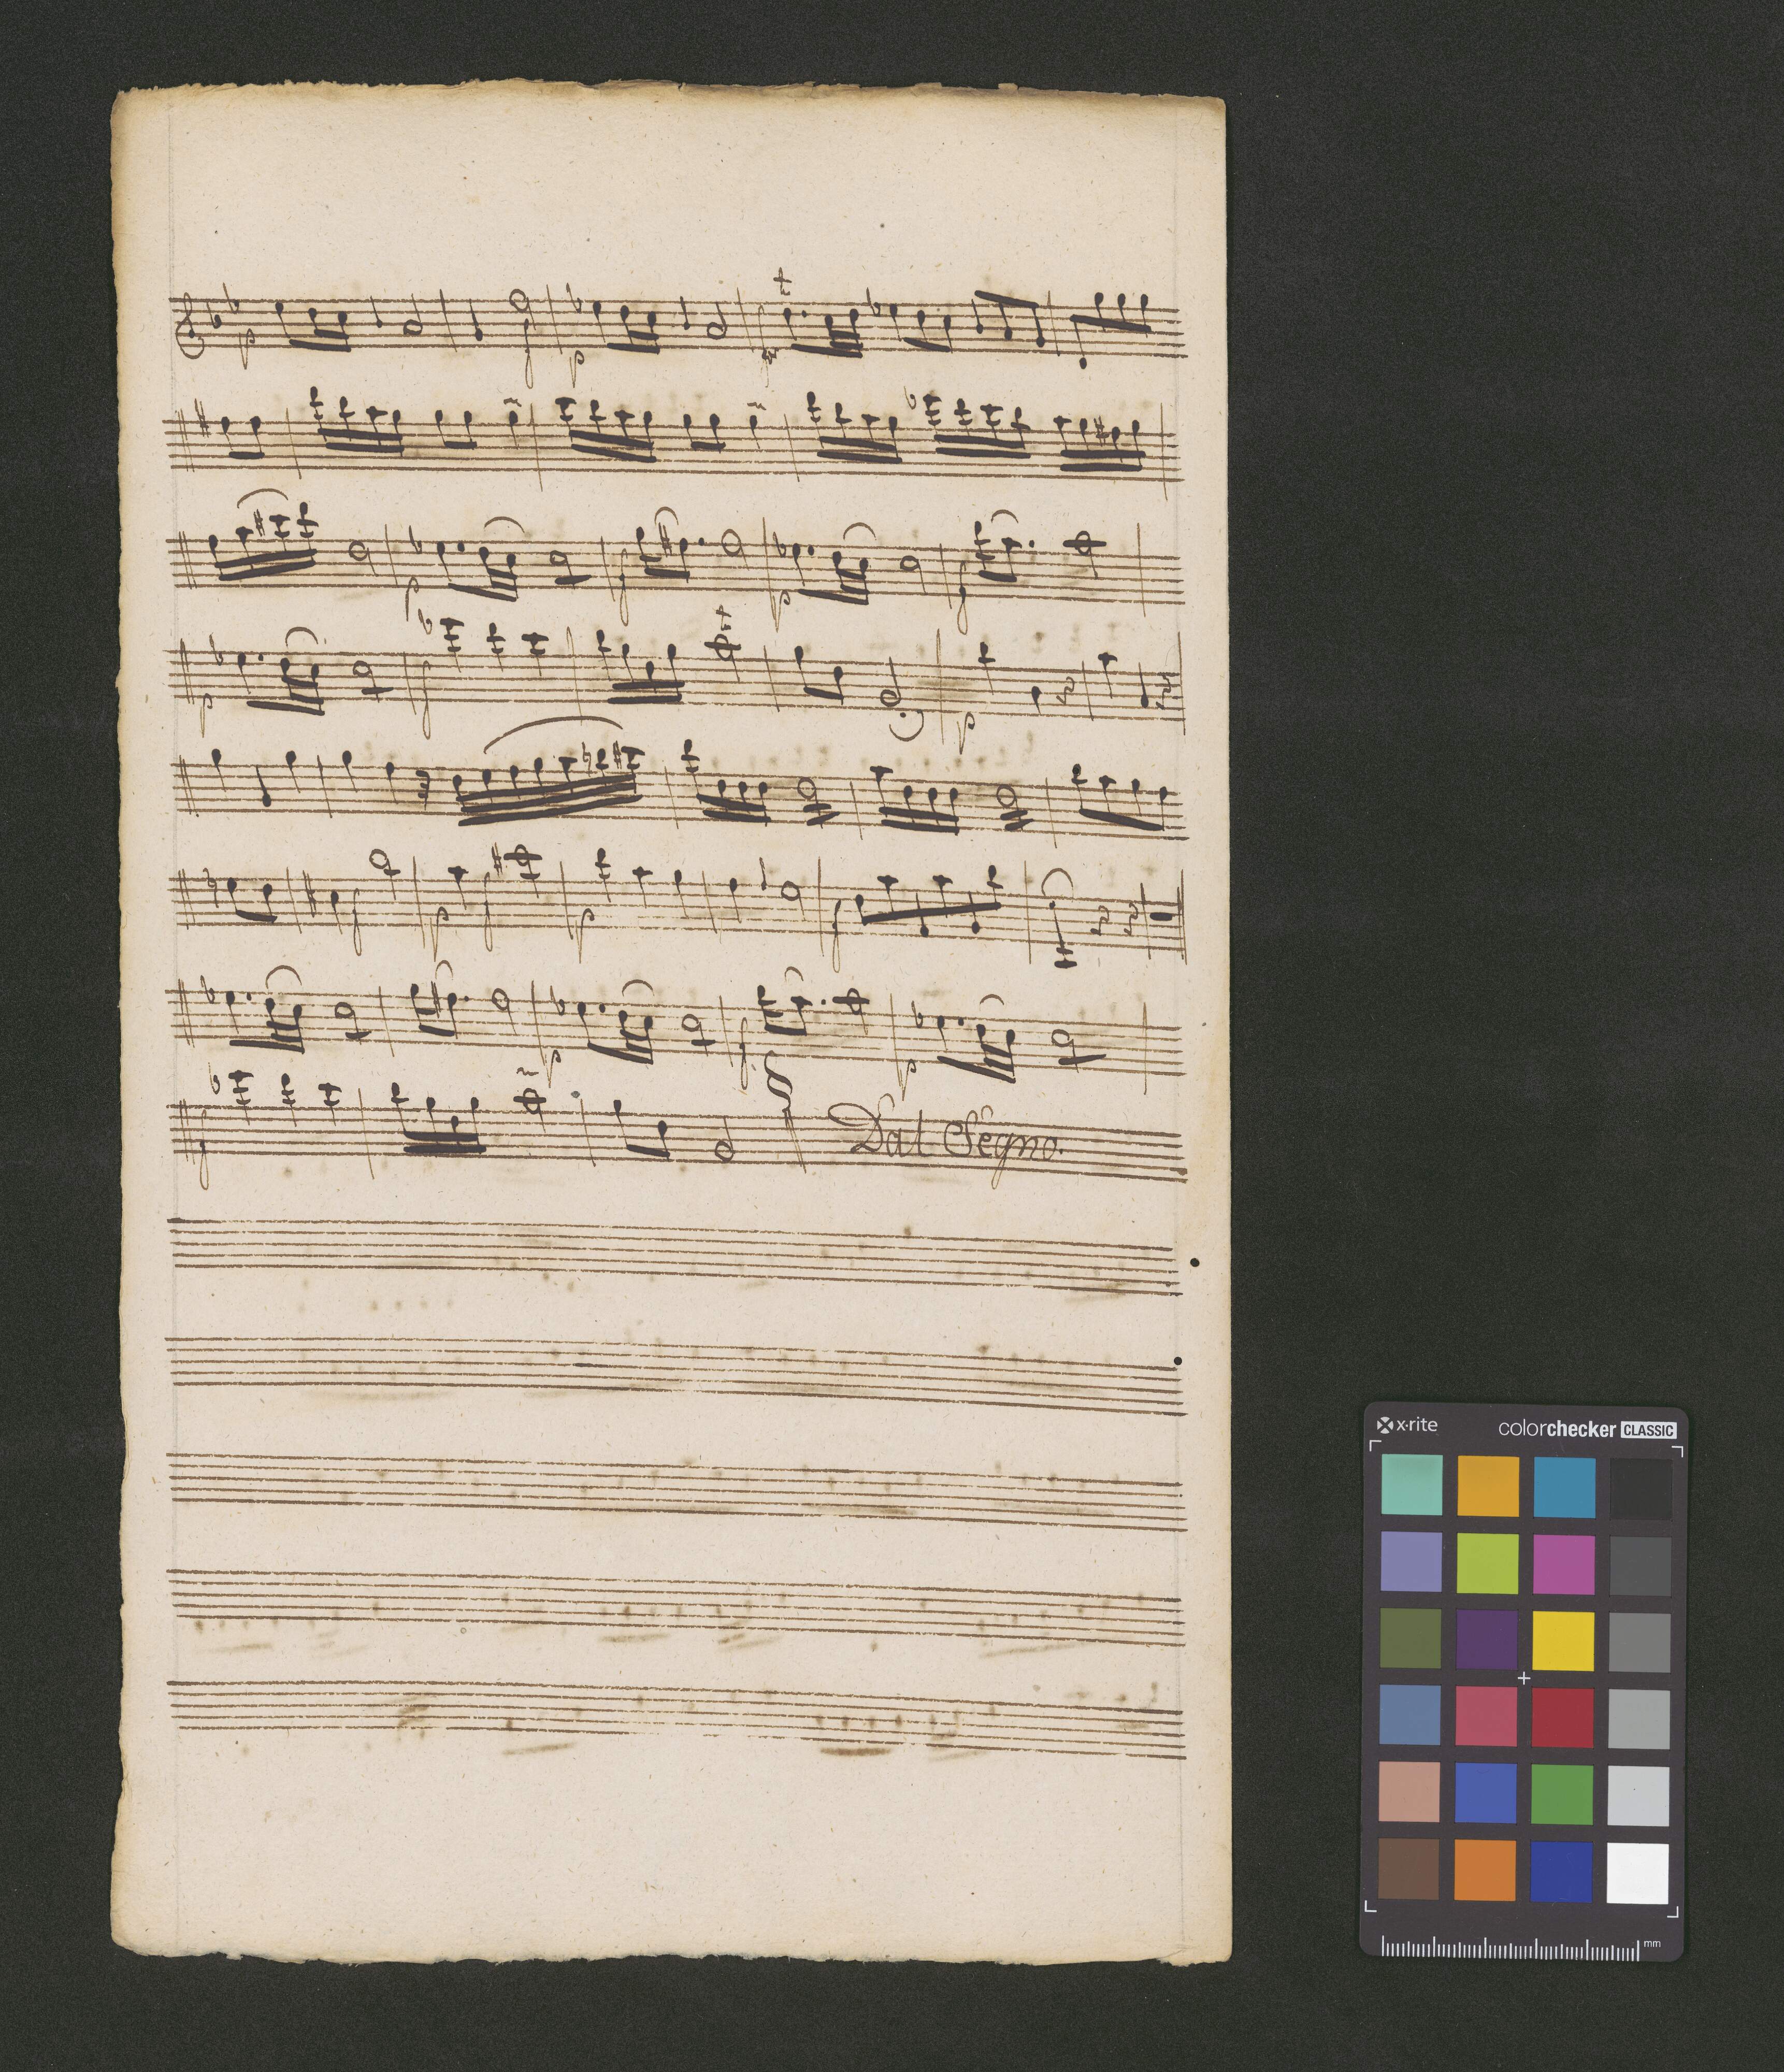 p f p t
p f p f
p f t p
f p f p f
p f p
f Dal Segno.
x·rite colorchecker CLASSIC
mm